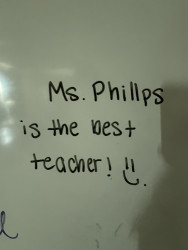 Ms. Phillps
is the best
teacher! !!